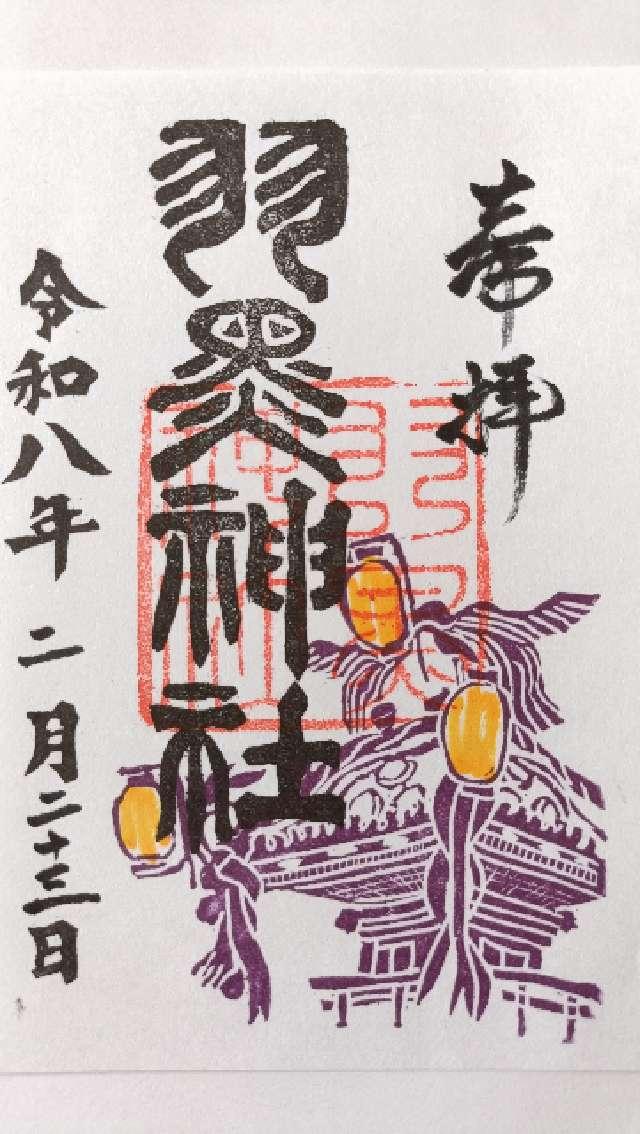 奉拝
羽黒神社
令和八年 二月二十三日